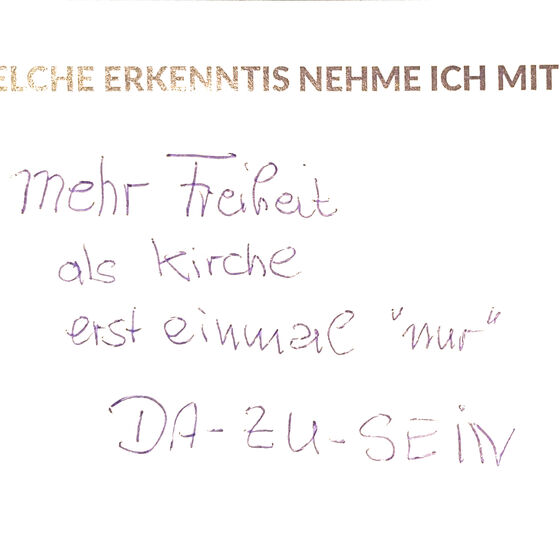 ELCHE ERKENNTIS NEHME ICH MIT
mehr Freiheit
als Kirche
erst einmal "nur"
DA-ZU-SEiN